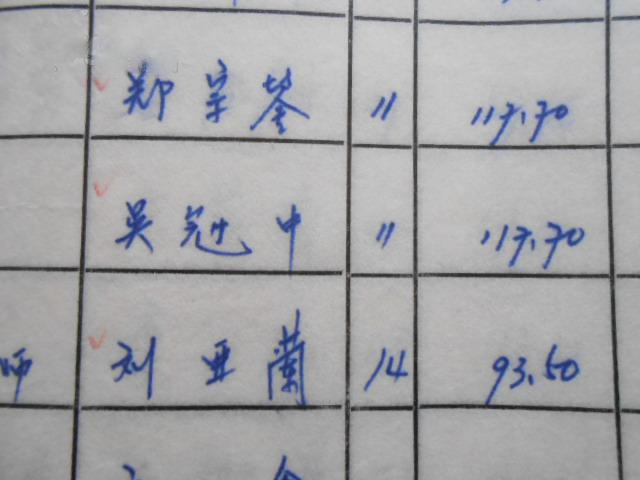 郑宗鋆 〃 117.70
吴冠中 〃 117.70
师 刘亚蘭 14 93.50